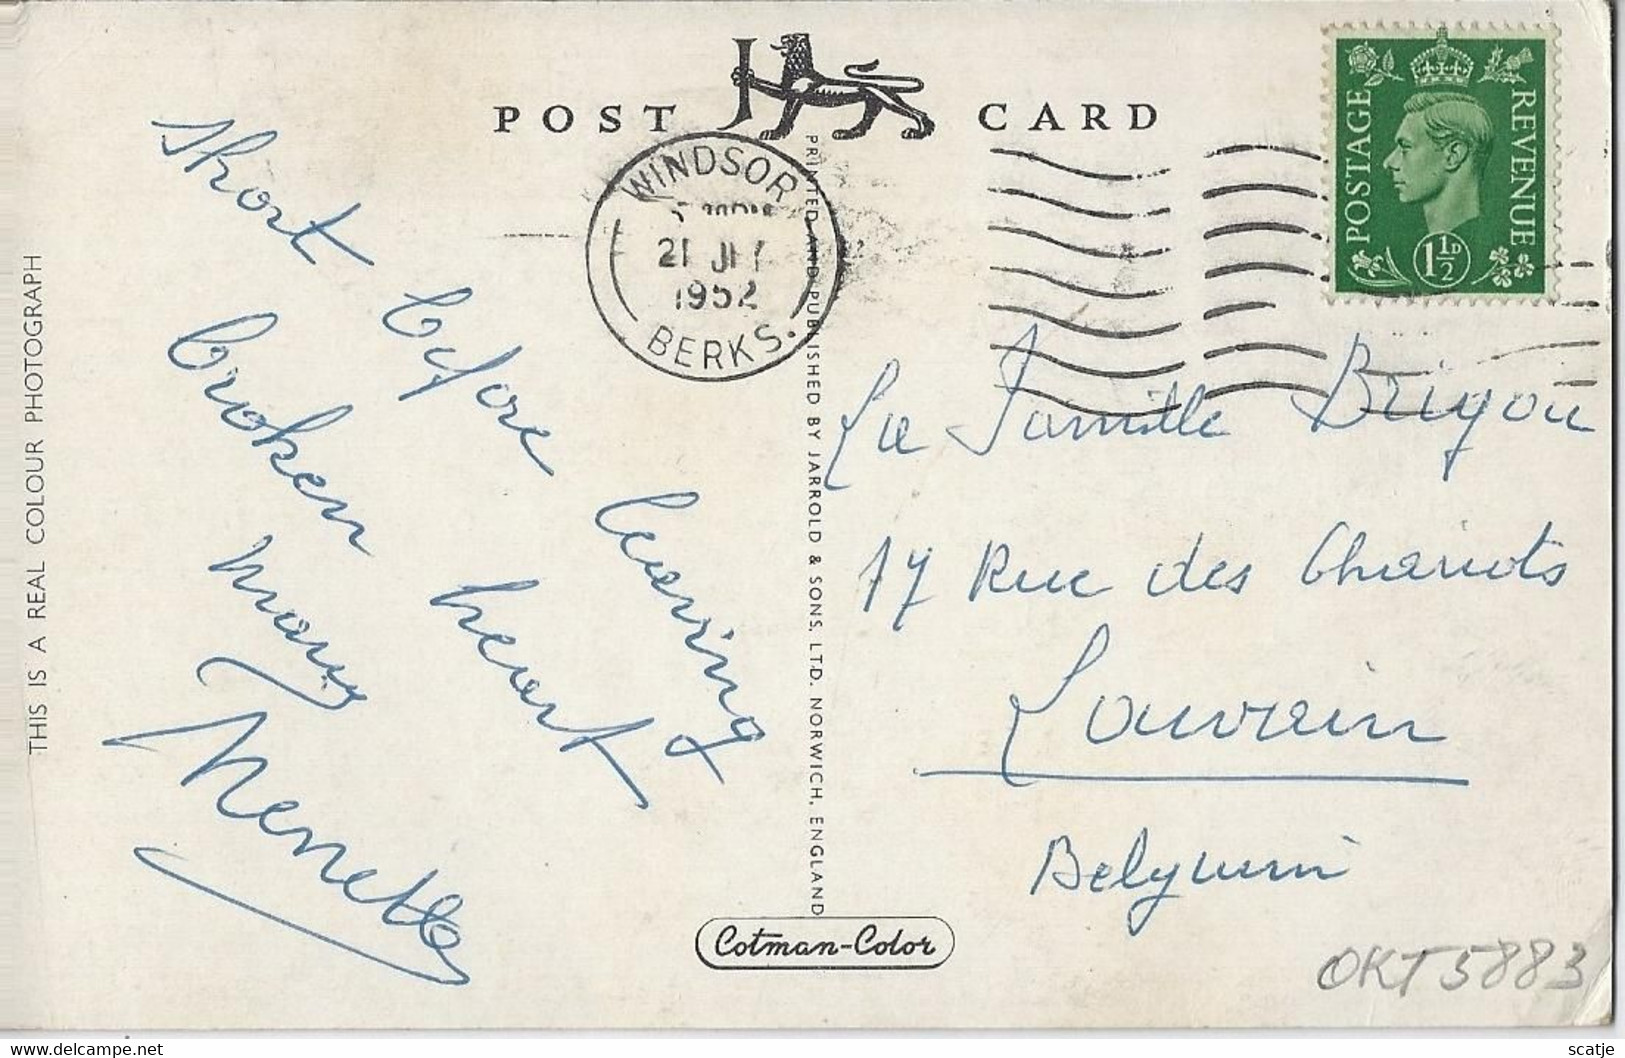 POST CARD
POSTAGE
REVENUE
1½D
WINDSOR
21 JLY
1952
BERKS.
THIS IS A REAL COLOUR PHOTOGRAPH
PRINTED AND PUBLISHED BY JARROLD & SONS, LTD. NORWICH, ENGLAND
Short before leaving
broken heart
many
Nenette
La Famille
17 Rue des Chariots
Louvain
Belgium
Cotman-Color
OKT5883
delcampe.net
scatje